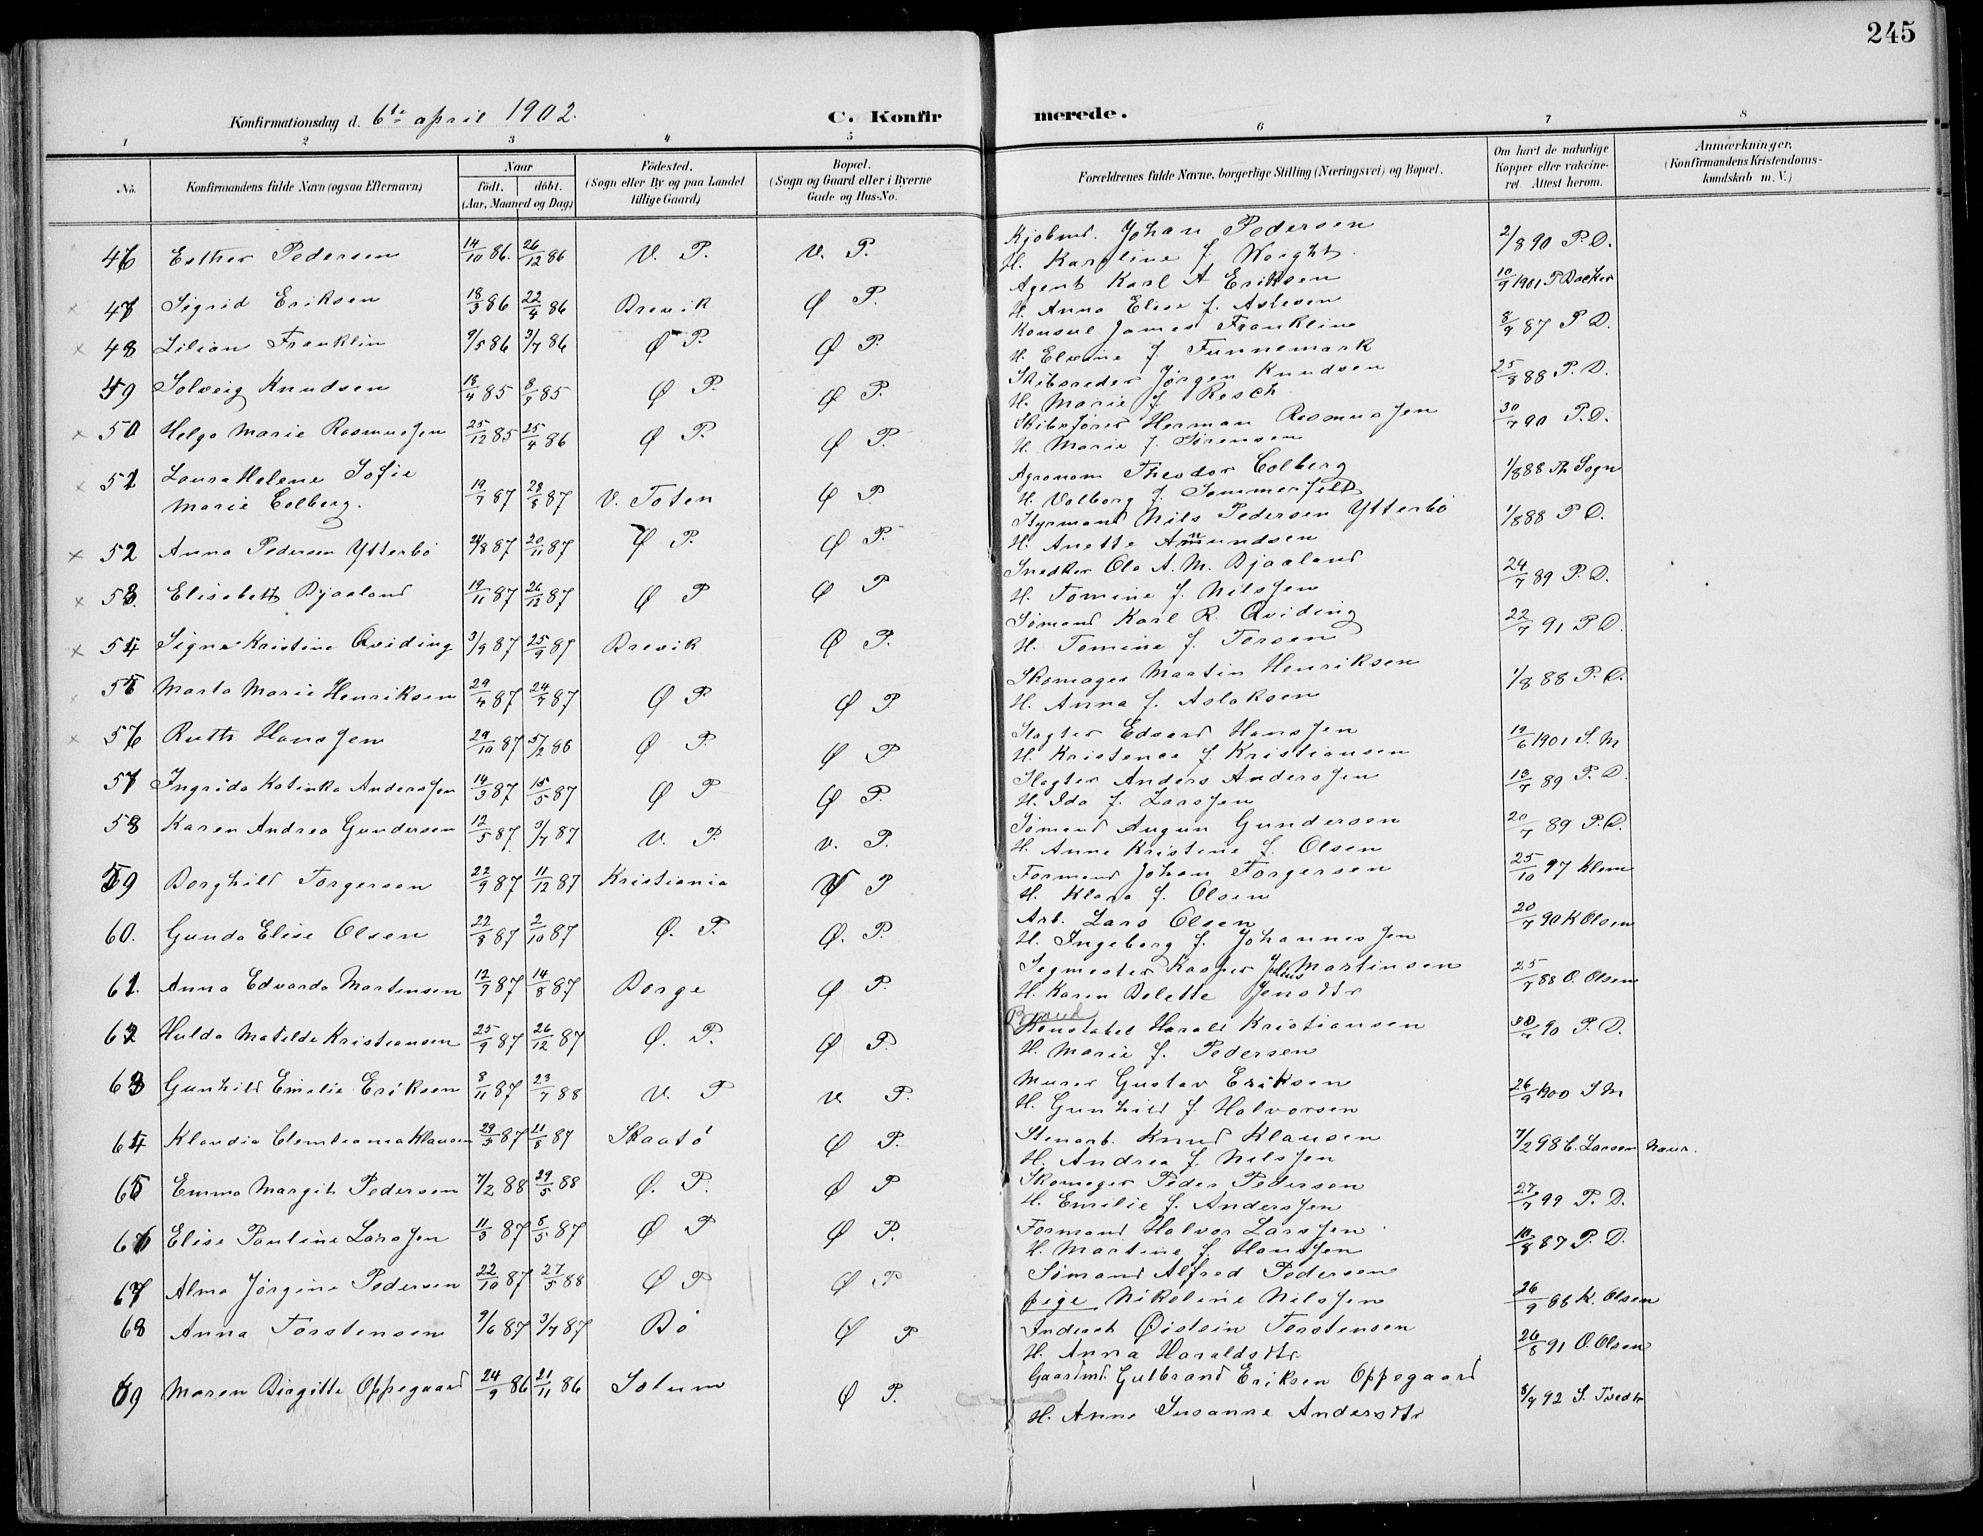 245
Konfirmationsdag d. 6te april 1902.
C. Konfirmerede.
1 2 3 4 5 6 7 8
No.
Konfirmandens fulde Navn (ogsaa Efternavn)
Naar
födt. döbt.
(Aar, Maaned og Dag)
Födested.
(Sogn eller By og paa Landet
tillige Gaard)
Bopæl.
(Sogn og Gaard eller i Byerne
Gade og Hus-No.
Forældrenes fulde Navne, borgerlige Stilling (Næringsvei) og Bopæl.
Om havt de naturlige
Kopper eller vakcine-
ret. Attest herom.
Anmærkninger,
(Konfirmandens Kristendoms-
kundskab m. V.)
46 Esther Pedersen 14/10 86. 26/12 86 V. P. V. P. Kjøbmd. Johan Pedersen 2/8 90 P. D.
H. Karoline f. Wright.
47 Sigrid Eriksen 18/3 86 22/4 86 Brevik Ø P. Agent Karl A Eriksen 10/9 1901 P Backer
H. Anna Elise f.
48 Lilian Franklin 9/5 86 3/7 86 Ø P. Ø P. Konsul James Franklin 8/9 87 P D.
H. f. Funnemark
49 Solveig Knudsen 18/4 85 8/9 85 Ø P. Ø P. Skibsreder Jørgen Knudsen 25/8 88 P. D.
H. Marie f. Resch
50 Helga Marie Rasmussen 25/12 85 25/4 86 Ø P. Ø P. Skibsfører Herman Rasmussen 30/7 90 P. D.
H. Marie f. Sørensen
51 Laura Helene Sofie
Marie Colberg. 19/7 87 28/8 87 V. Toten Ø P Agronom Theodor Colberg 1/8 88 Th Sogn
H. Valborg f. Sommerfelt
52 Anna Pedersen Ytterbö 24/8 87 20/11 87 Ø P. Ø P. Styrmand Nils Pedersen Ytterbö 1/8 88 P D.
H. Anette Amundsen
53. Elisabeth Bjaaland 19/11 87 26/12 87 Ø P Ø P Snedker Ole A. M. Bjaaland 24/7 89 P. D.
H. Tomine f. Nilssen
54 Signe Kristine Qviding 3/9 87 25/9 87 Brevik Ø P. Sømand Karl R. Qviding 22/7 91 P D.
H. Tomine f. Torsen
55 Marta Marie Henriksen 29/4 87 24/7 87 Ø P. Ø P Skomager Martin Henriksen 1/8 88 P. D.
H. Anna f. Aslaksen
56 Ruth Hanssen 29/10 87 5/2 88 Ø P. Ø P Slagter Edvard Hanssen 19/6 1901 S. M
H. Kristence f. Kristiansen
57 Ingrida Katinka Anderssen 14/3 87 15/5 87 Ø P Ø P. Slagter Anders Anderssen 13/7 89 P. D.
H. Ida f. Larssen
58 Karen Andrea Gundersen 12/5 87 3/7 87 V. P. V. P. Sømand Augun Gundersen 20/7 89 P. D.
H. Anne Kristine f. Olsen
59 Borghild Torgersen 22/9 87 11/12 87 Kristiania Ø P Formand Johan Torgersen 25/10 97 Klem
H. Klara f. Olsen
60. Gunda Elise Olsen 22/8 87 2/10 87 Ø. P. Ø. P. Arb. Lars Olsen 20/7 90 K Olsen
H. Ingeborg f. Johannessen
61. Anna Edvarda Martensen 12/7 87 14/8 87 Borge Ø P. Segmester Kasper Julius Martinsen 25/7 88 O. Olsen
H. Karen Bolette Jensdtr
62 Hulda Matilde Kristiansen 25/9 87 26/12 87 Ø. P. Ø P. Brand Konstabel Harald Kristiansen 30/7 90 P. D.
H. Marie f. Pedersen
63 Gunhild Emelie Eriksen 8/11 87 23/7 88 V. P V. P. Murer Gustav Eriksen 26/9 1900 S M
H. Gunhild f. Halvorsen
64 Klaudia Clementiania Klausen 29/5 87 21/8 87 Skaatö Ø P. Stenarb. Knud Klausen 7/2 98 C. Larsen Naur.
H. Andrea f. Nilssen
65 Emma Margit Pedersen 7/2 88 29/5 88 Ø. P. Ø P Skomager Peder Pedersen 27/7 99 P. D.
H. Emilie f. Anderssen
66 Elise Pauline Larssen 11/3 87 8/5 87 Ø P Ø P. Formand Halvor Larssen 18/8 87 P. D.
H. Martine f. Hanssen
67 Alma Jørgine Pedersen 22/10 87 27/5 88 Ø P Ø P Sømand Alfred Pedersen
pige Nikoline Nilssen 26/9 88 K. Olsen
68 Anna Torstensen 9/6 87 3/7 87 Bö Ø P Inderst Øistein Torstensen 26/8 91 O. Olsen
H. Anna Haraldsdtr
69 Maren Birgitte Oppegaard 24/9 86 21/11 86 Solum Ø P. Gaardmd. Gulbrand Eriksen Oppegaard 8/9 92 S. Tvedt
H. Anne Susanne Andersdtr